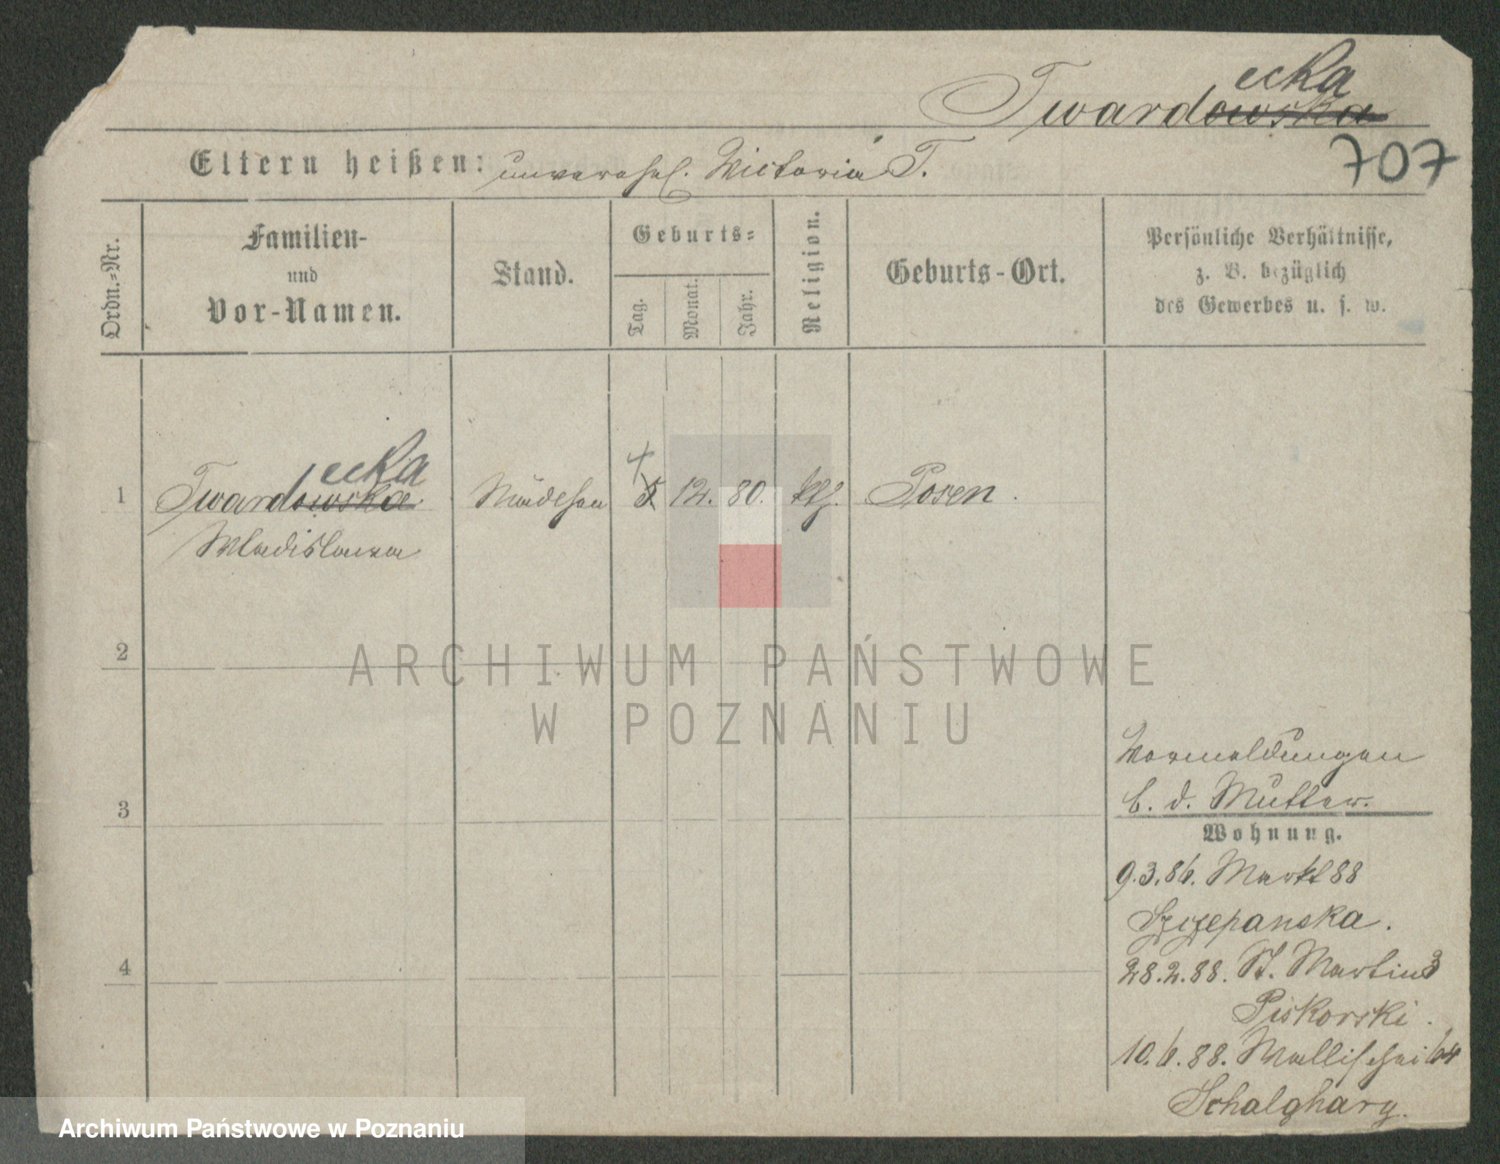 ecka
Twardowska
707
Eltern heißen: unverehel. Victoria T.
Ordn.-Nr.
Familien-
und
Vor-Namen.
Stand.
Geburts-
Tag.
Monat.
Jahr.
Religion.
Geburts-Ort.
Persönliche Verhältnisse,
z. B. bezüglich
des Gewerbes u. s. w.
ecka
1 Twardowska Mädchen 5 12. 80. kth. Posen.
Wladislawa
2
ARCHIWUM PAŃSTWOWE
W POZNANIU
Vormeldungen
b. d. Mutter.
3
Wohnung.
9.3.86. Markt 88
Szczepanska.
4
28.2.88. St. Martin 3
Piskorski.
10.6.88. Wallischei 64
Schalghary.
Archiwum Państwowe w Poznaniu